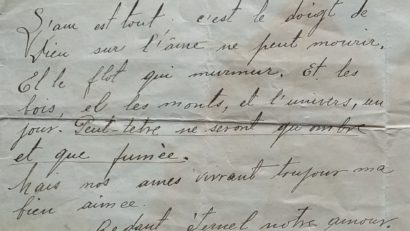 L'am est tout. c'est le doigt de
Dieu sur l'âme ne peut mourir.
Et le flot qui murmur. Et, les
bois, et les monts, et l'univers, un
jour. Peut-letre ne seront qu'ombre
et que fumèe.
Mais nos ames vivrant toujour ma
bien aimée.
éternel notre amour.